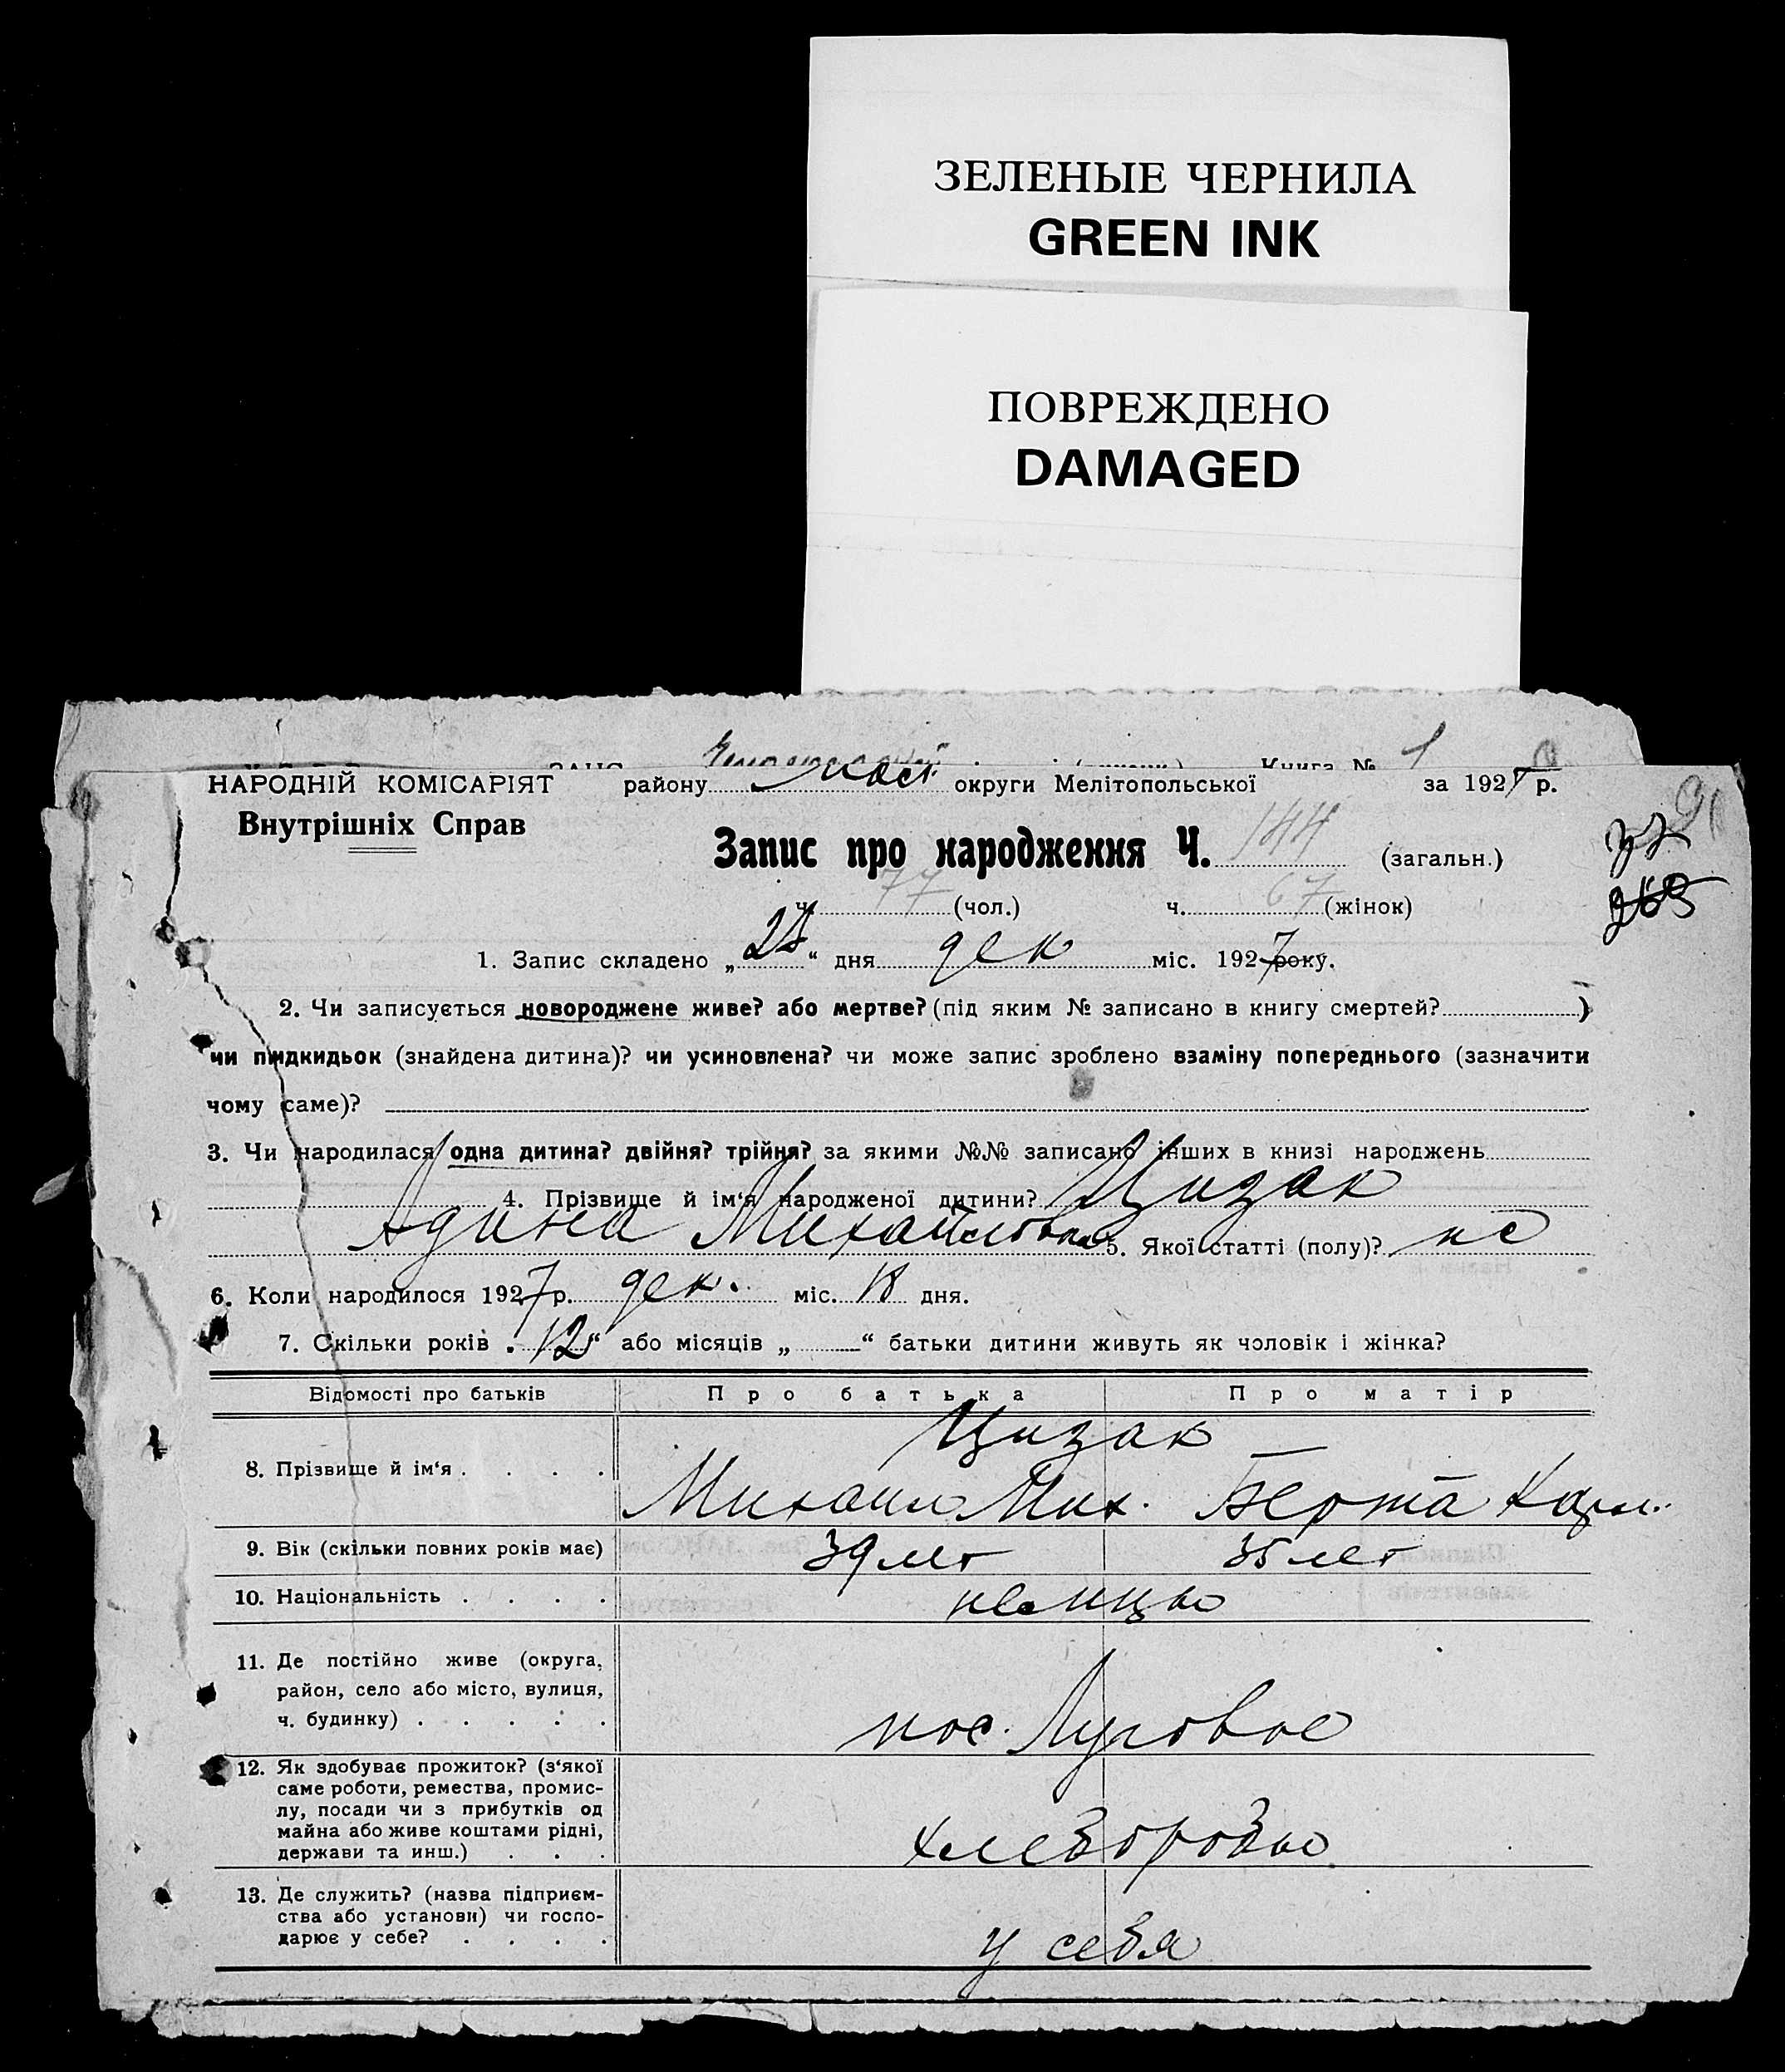 ЗЕЛЕНЫЕ ЧЕРНИЛА
GREEN INK
ПОВРЕЖДЕНО
DAMAGED
Книга № 1
НАРОДНІЙ КОМІСАРІЯТ району округи Мелітопольської за 1927 р.
Внутрішніх Справ
Запис про народження Ч. 144 (загальн.)
ч. 77 (чол.) ч. 67 (жінок)
1. Запис складено „ “ дня дек міс. 1927 року.
2. Чи записується новороджене живе? або мертве? (під яким № записано в книгу смертей? )
чи пидкидьок (знайдена дитина)? чи усиновлена? чи може запис зроблено взаміну попереднього (зазначити
чому саме)?
3. Чи народилася одна дитина? двійня? трійня? за якими №№ записано інших в книзі народжень
4. Прізвище й ім‘я народженої дитини? Цизак
Адина Михайловна 5. Якої статті (полу)?
6. Коли народилося 1927 р. дек. міс. 18 дня.
7. Скільки років „ 12 “ або місяців „ “ батьки дитини живуть як чоловік і жінка?
Відомості про батьків Про батька Про матір
Цизак
8. Прізвище й ім‘я . . . . Михаил Мих. Берта Карл.
9. Вік (скільки повних років має) 39 лет 35 лет
10. Національність . . . . немцы
11. Де постійно живе (округа,
район, село або місто, вулиця,
ч. будинку) . . . . . пос. Луговое
12. Як здобуває прожиток? (з‘якої
саме роботи, ремества, промис-
лу, посади чи з прибутків од
майна або живе коштами рідні,
держави та инш.) . . . хлеборобы
13. Де служить? (назва підприєм-
ства або установи) чи госпо-
дарює у себе? . . . . у себя